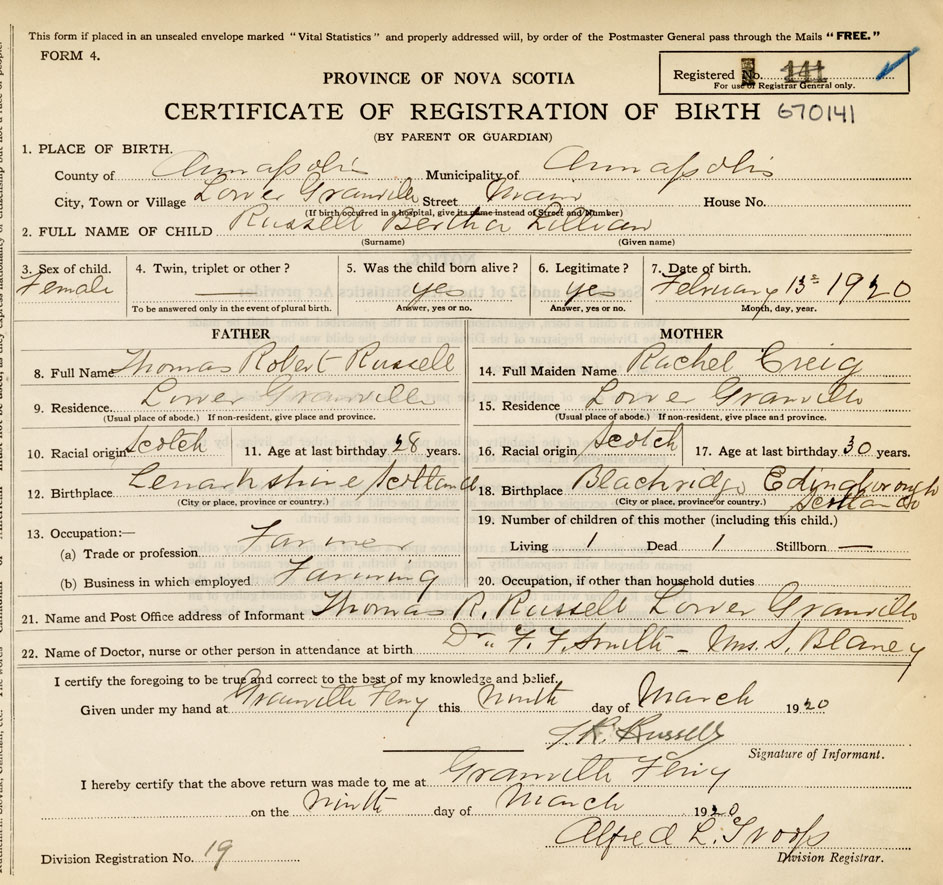 This form if placed in an unsealed envelope marked "Vital Statistics" and properly addressed will, by order of the Postmaster General pass through the Mails "FREE."
FORM 4.
PROVINCE OF NOVA SCOTIA
Registered No. 141
For use of Registrar General only.
CERTIFICATE OF REGISTRATION OF BIRTH 670141
(BY PARENT OR GUARDIAN)
1. PLACE OF BIRTH.
County of Annapolis Municipality of Annapolis
City, Town or Village Lower Granville Street Main House No.
(If birth occurred in a hospital, give its name instead of Street and Number)
2. FULL NAME OF CHILD Russell Bertha Lillian
(Surname) (Given name)
3. Sex of child. 4. Twin, triplet or other? 5. Was the child born alive? 6. Legitimate? 7. Date of birth.
Female — yes yes February 13th 1920
To be answered only in the event of plural birth. Answer, yes or no. Answer, yes or no. Month, day, year.
FATHER MOTHER
8. Full Name Thomas Robert Russell 14. Full Maiden Name Rachel Creig
9. Residence. Lower Granville 15. Residence Lower Granville
(Usual place of abode.) If non-resident, give place and province. (Usual place of abode.) If non-resident, give place and province.
10. Racial origin Scotch 11. Age at last birthday 28 years. 16. Racial origin Scotch 17. Age at last birthday 30 years.
12. Birthplace Lenarkshire Scotland 18. Birthplace Blackridge Edingborough Scotland
(City or place, province or country.) (City or place, province or country.)
13. Occupation:— 19. Number of children of this mother (including this child.)
(a) Trade or profession Farmer Living 1 Dead 1 Stillborn —
(b) Business in which employed Farming 20. Occupation, if other than household duties
21. Name and Post Office address of Informant Thomas R. Russell Lower Granville
22. Name of Doctor, nurse or other person in attendance at birth Dr. F. F. Smith - Mrs. S. Blaney
I certify the foregoing to be true and correct to the best of my knowledge and belief.
Given under my hand at Granville Ferry this Ninth day of March 1920
T.R. Russell
Signature of Informant.
I hereby certify that the above return was made to me at Granville Ferry
on the Ninth day of March 1920
Alfred L. Troop
Division Registration No. 19 Division Registrar.